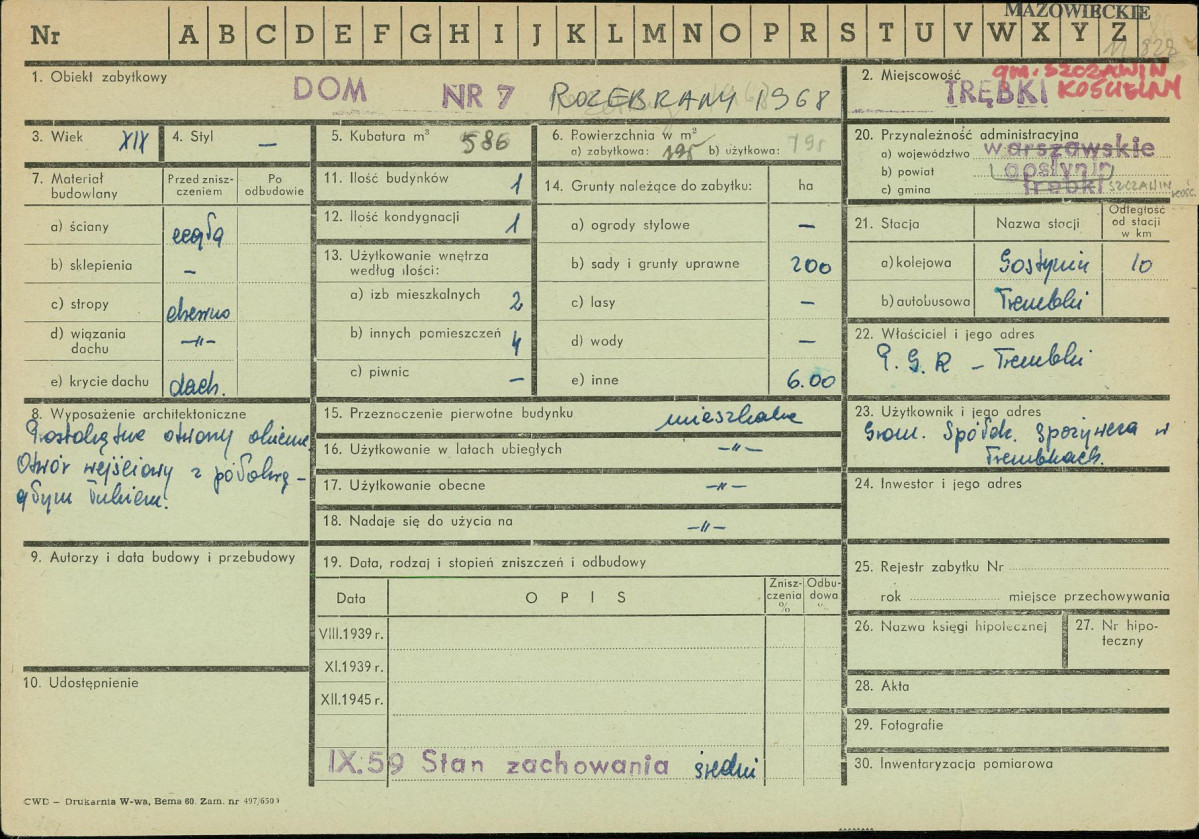 MAZOWIECKIE
Nr A B C D E F G H I J K L M N O P R S T U V W X Y Z
11.828
1. Obiekt zabytkowy
DOM NR 7 ROZEBRANY 1968
2. Miejscowość
gm. SZCZAWIN
TRĘBKI KOŚCIELNY
3. Wiek XIX
4. Styl —
5. Kubatura m³ 586
6. Powierzchnia w m²
a) zabytkowa: 195 b) użytkowa: 195
20. Przynależność administracyjna
a) województwo warszawskie
b) powiat gostynin
c) gmina trębki SZCZAWIN KOŚC.
7. Materiał budowlany
Przed zniszczeniem
Po odbudowie
a) ściany cegła
b) sklepienia —
c) stropy drewno
d) wiązania dachu —"—
e) krycie dachu dach.
11. Ilość budynków 1
12. Ilość kondygnacji 1
13. Użytkowanie wnętrza
według ilości:
a) izb mieszkalnych 2
b) innych pomieszczeń 4
c) piwnic —
14. Grunty należące do zabytku: ha
a) ogrody stylowe —
b) sady i grunty uprawne 200
c) lasy —
d) wody —
e) inne 6.00
21. Stacja Nazwa stacji Odległość od stacji w km
a) kolejowa Gostynin 10
b) autobusowa Trembki
22. Właściciel i jego adres
P.G.R — Trembki
8. Wyposażenie architektoniczne
Prostokątne otwory okienne
Otwór wejściowy z półokrą-
głym łukiem.
15. Przeznaczenie pierwotne budynku mieszkalne
16. Użytkowanie w latach ubiegłych —"—
17. Użytkowanie obecne —"—
18. Nadaje się do użycia na —"—
23. Użytkownik i jego adres
Grom. Spółdz. Spożywcza w
Trembkach.
24. Inwestor i jego adres
9. Autorzy i data budowy i przebudowy
19. Data, rodzaj i stopień zniszczeń i odbudowy
Data OPIS Zniszczenia % Odbudowa %
VIII.1939 r.
XI.1939 r.
XII.1945 r.
IX.59 Stan zachowania średni
25. Rejestr zabytku Nr
rok miejsce przechowywania
26. Nazwa księgi hipotecznej
27. Nr hipoteczny
10. Udostępnienie
28. Akta
29. Fotografie
30. Inwentaryzacja pomiarowa
CWD — Drukarnia W-wa, Bema 60. Zam. nr 497/650